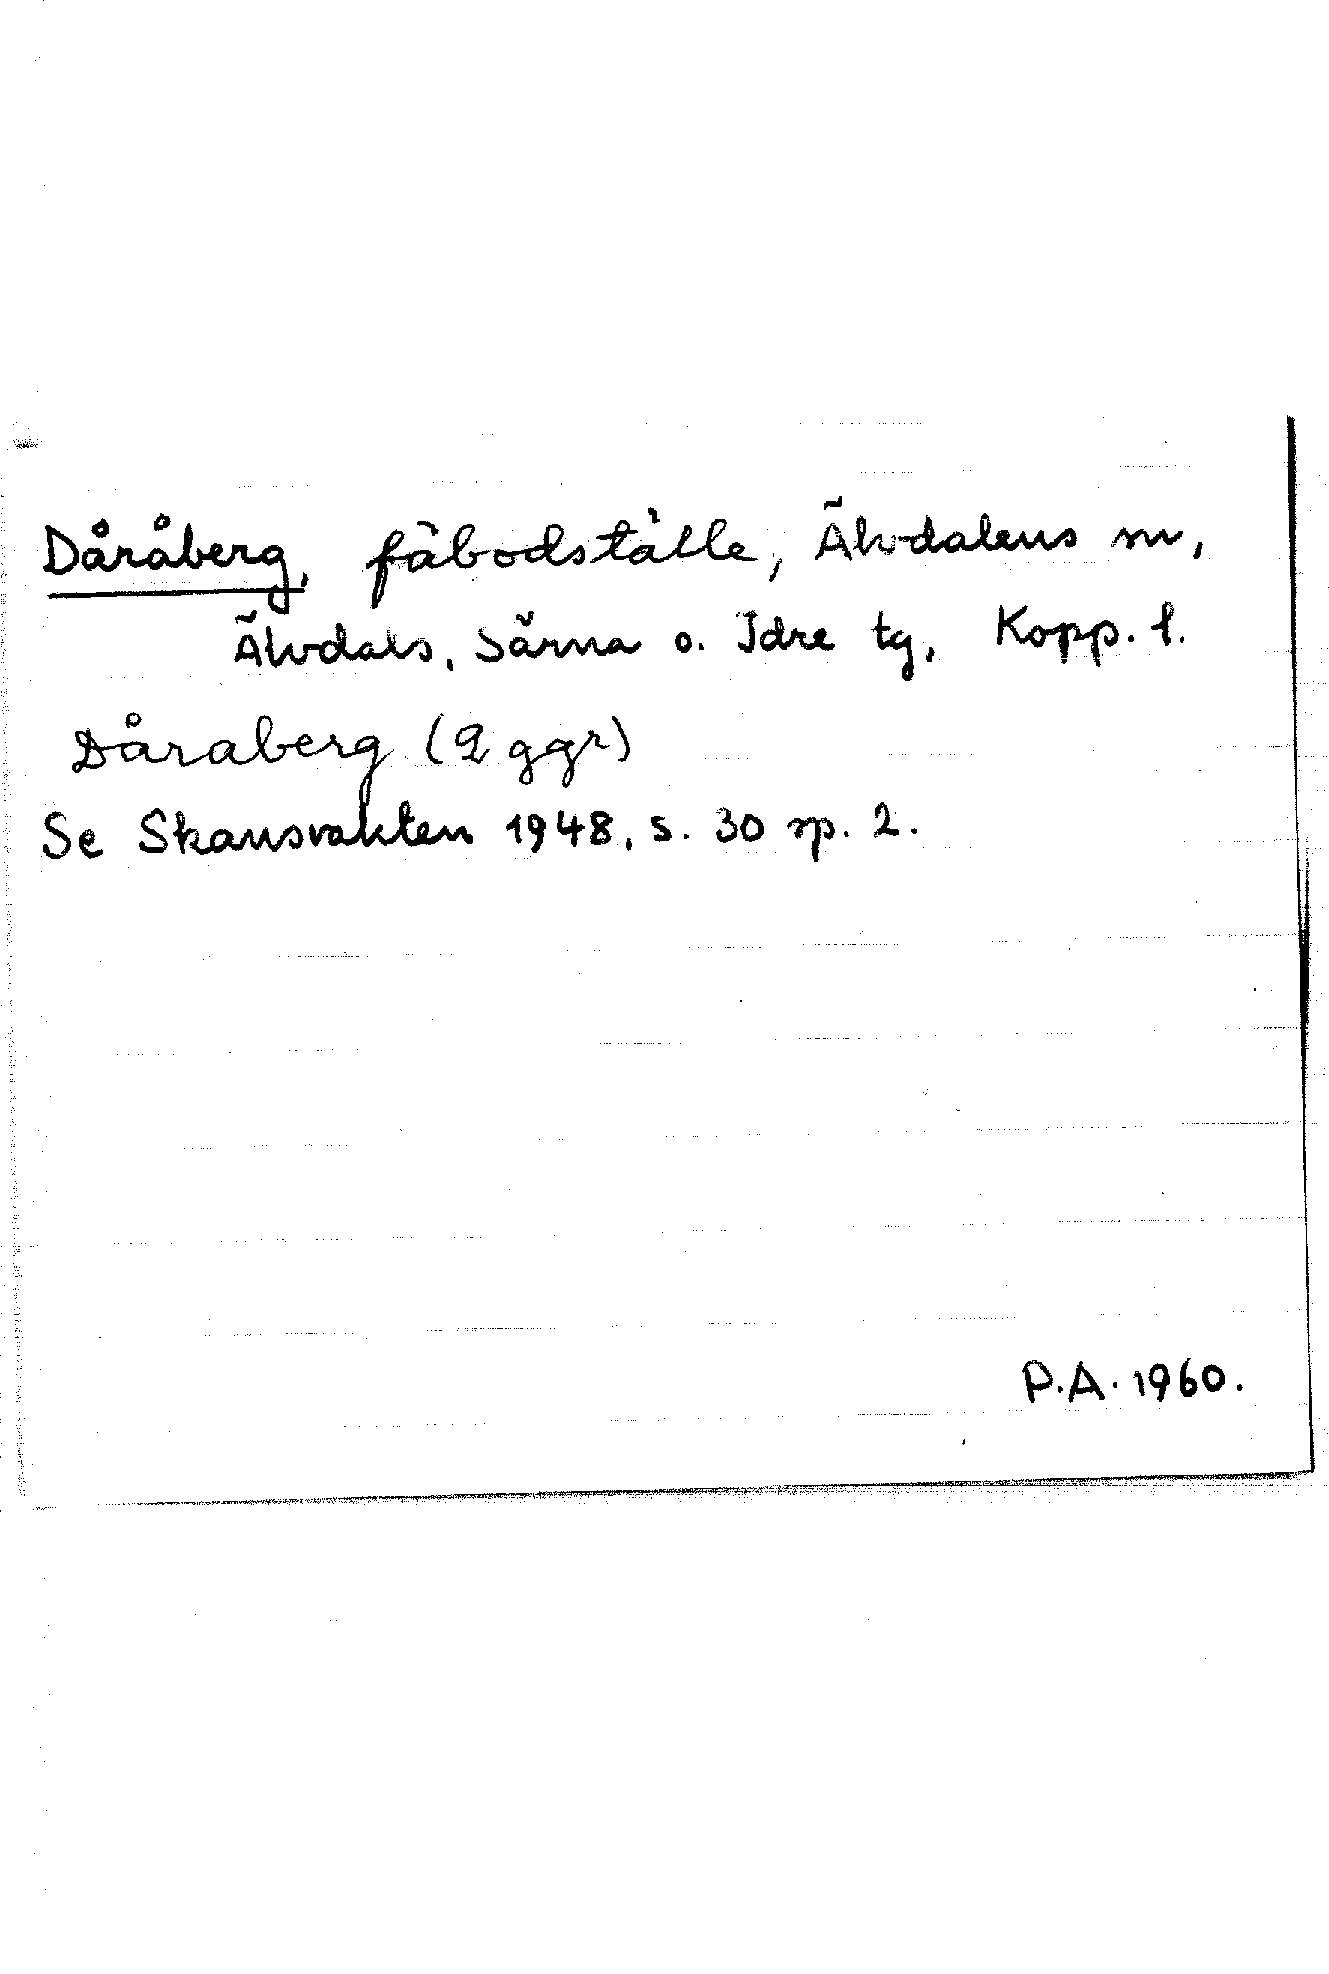 Dåråberg, fäbodställe, Älvdalens sn,
Älvdals, Särna o. Idre tg, Kopp. l.
Dåraberg (2 ggr)
Se Skansvakten 1948, s. 30 sp. 2.
P.A. 1960.